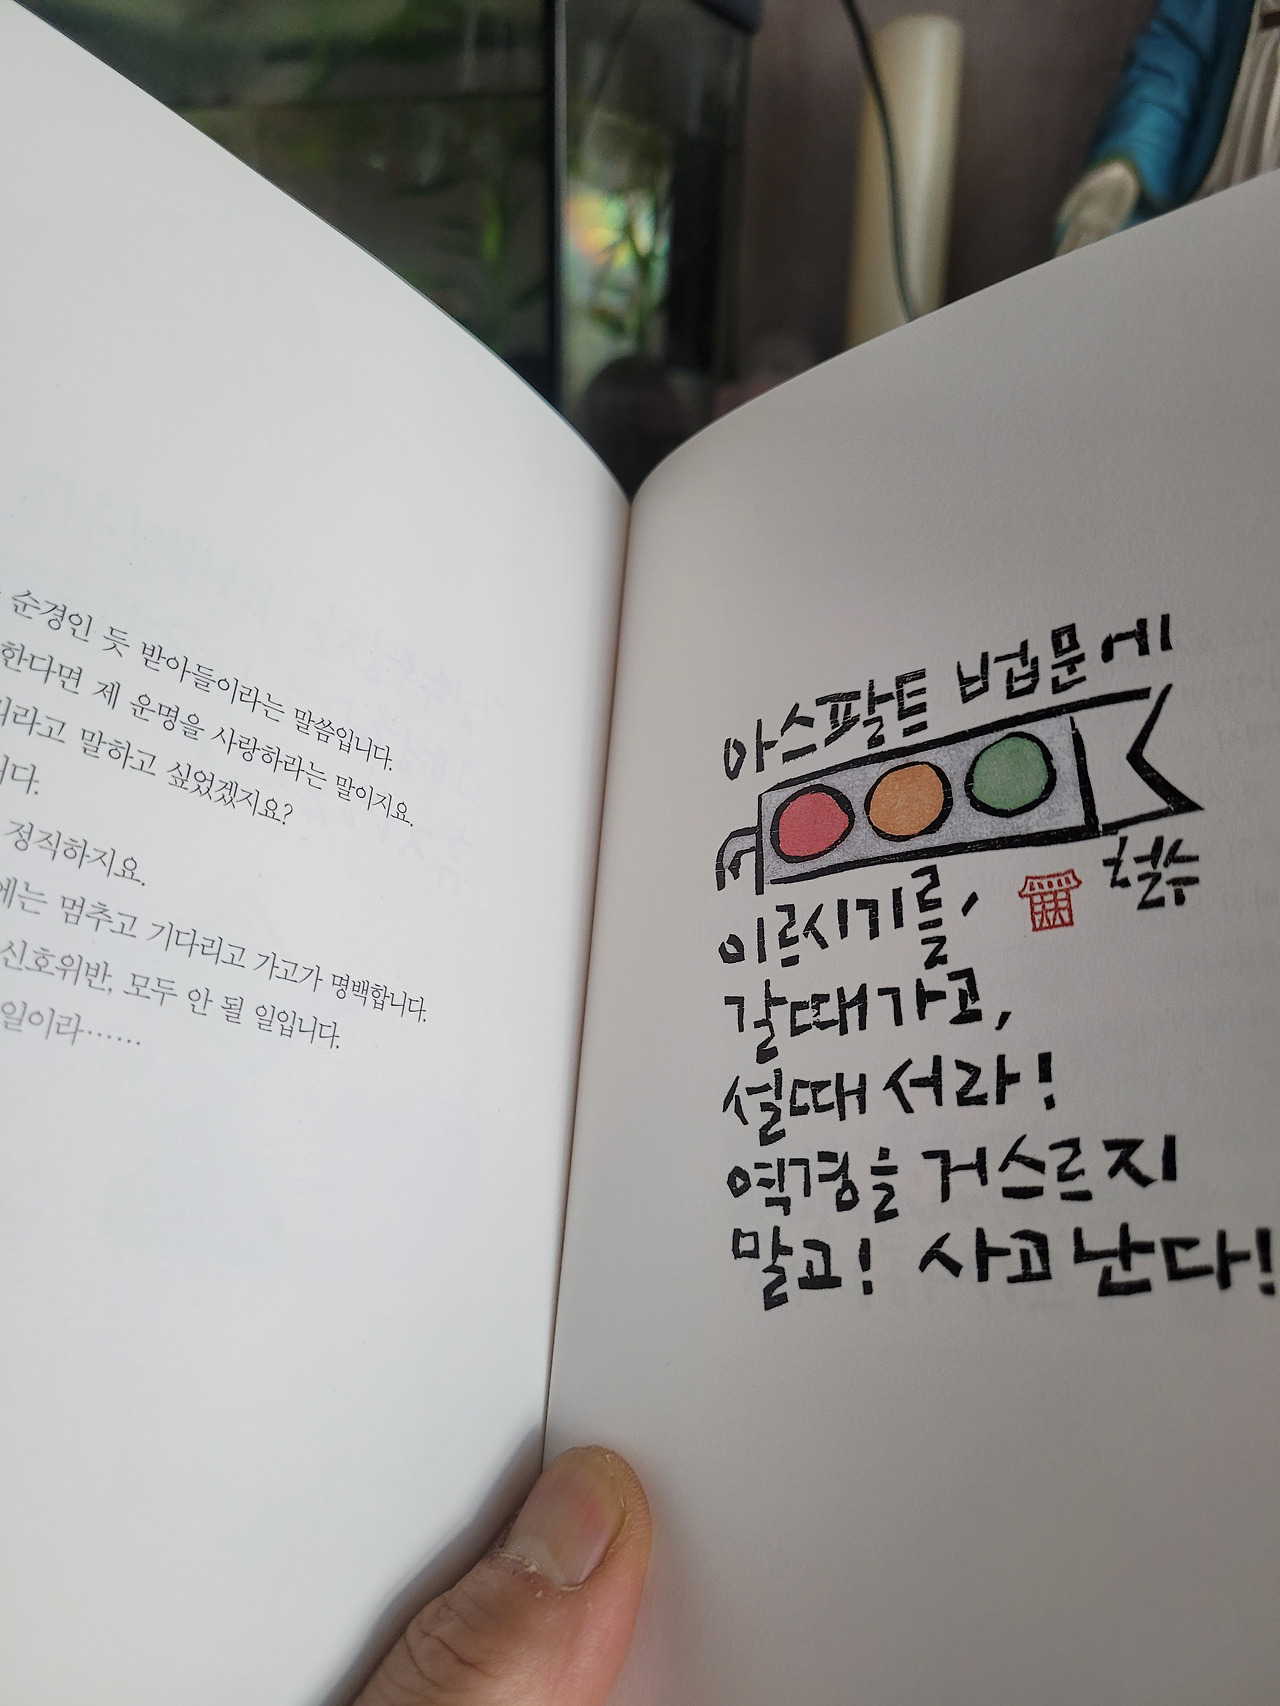 순경인 듯 받아들이라는 말씀입니다.
한다면 제 운명을 사랑하라는 말이지요.
라고 말하고 싶었겠지요?
다.
정직하지요.
에는 멈추고 기다리고 가고가 명백합니다.
신호위반, 모두 안 될 일입니다.
일이라……
아스팔트 법문에
철수
이르시기를,
갈때 가고,
설때 서라!
역경을 거스르지
말고! 사고난다!